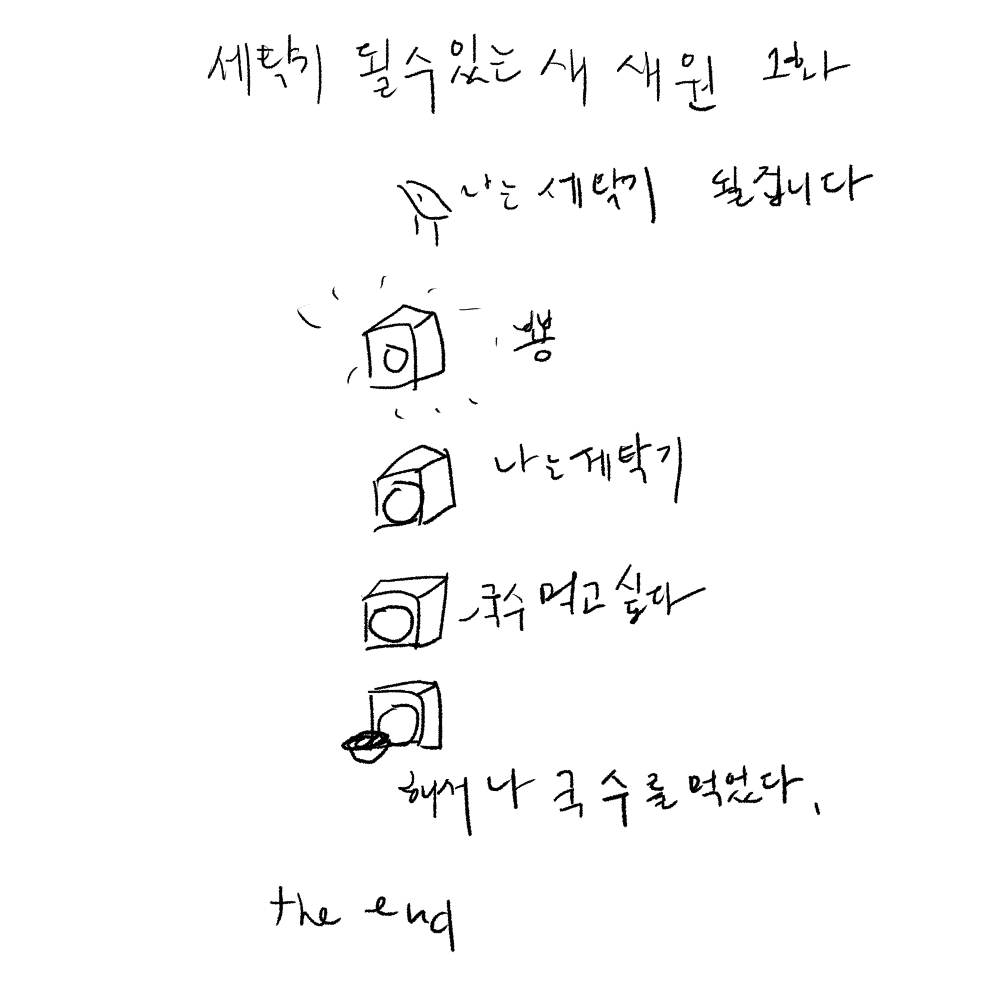 세탁기 될수있는 새 새원 1화
나는 세탁기 될겁니다
뿅
나는 세탁기
국수 먹고 싶다
해서 나 국수를 먹었다.
the end